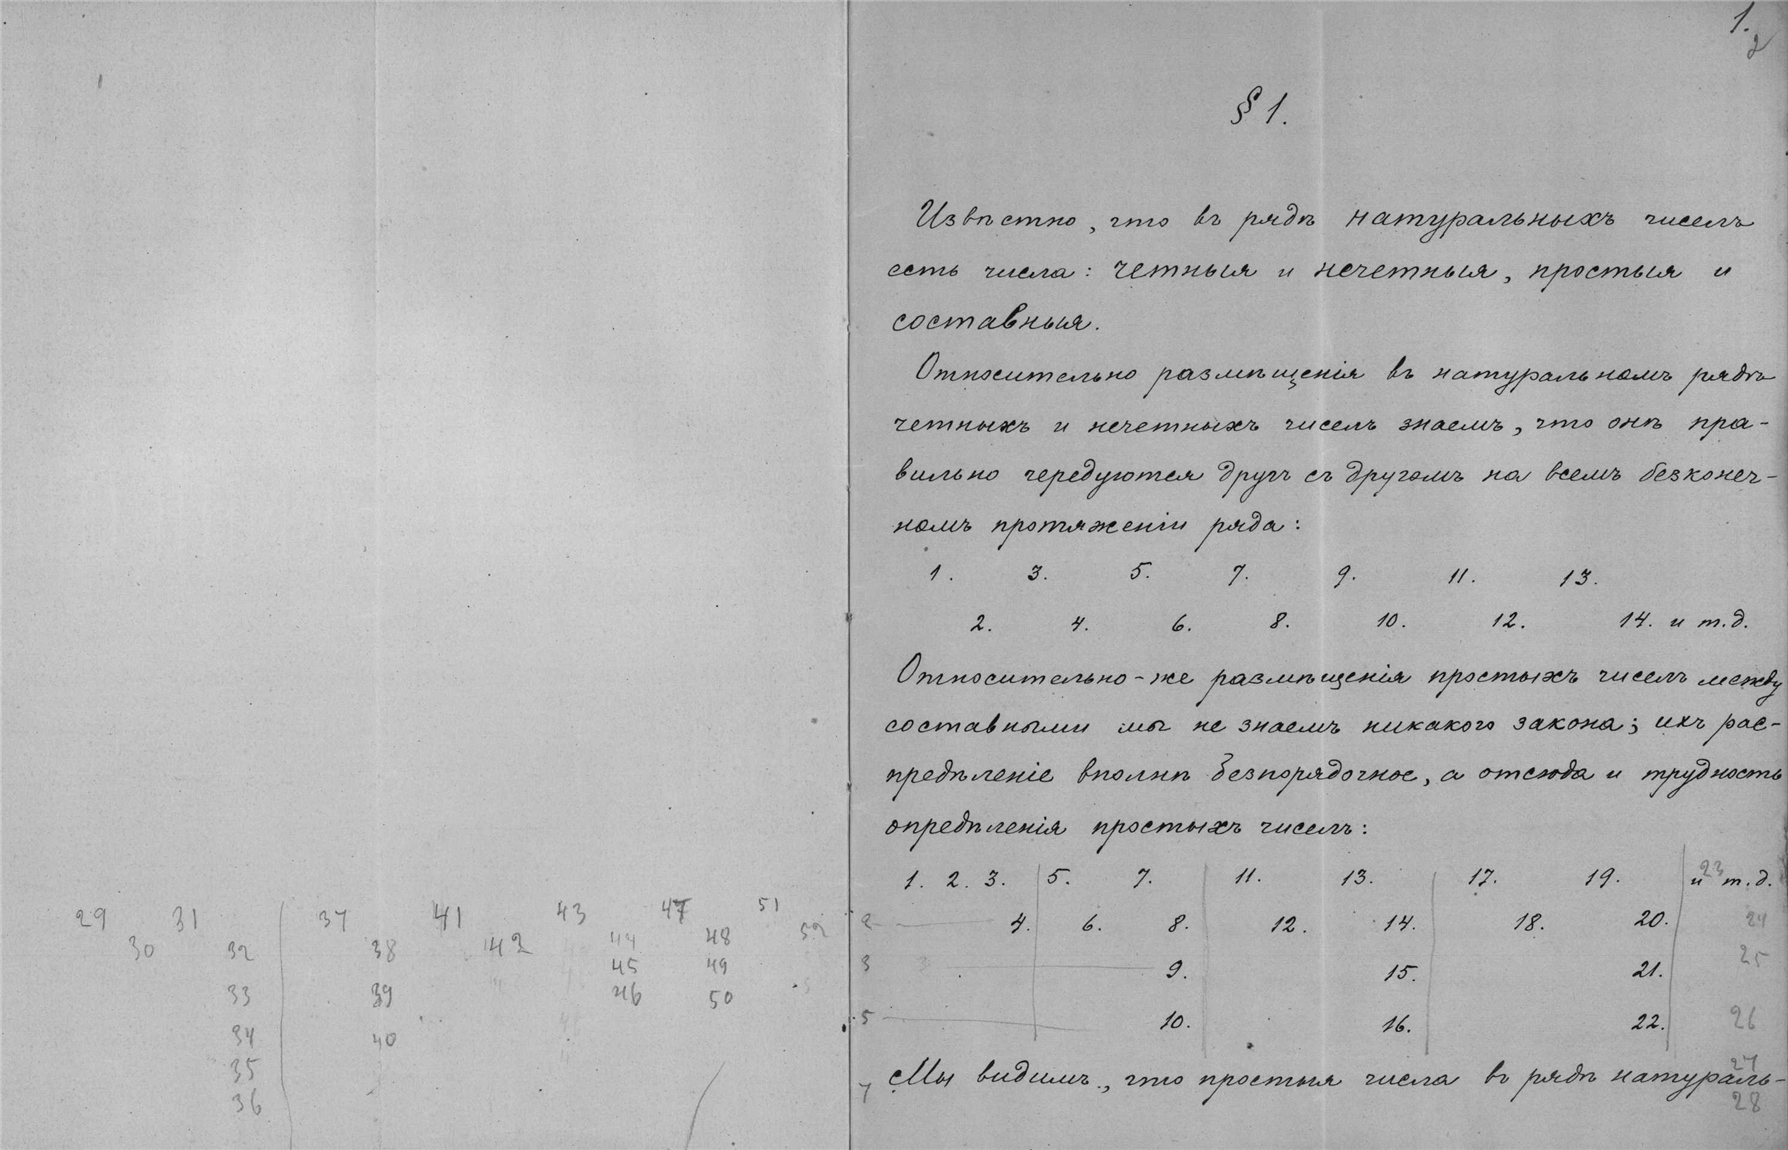 29 31 37 41 43 47 51
30 32 38 42 44 48 52
33 39 45 49
34 40 46 50
35
36
1.
2
§ 1.
Извѣстно, что въ рядѣ натуральныхъ чиселъ
есть числа: четныя и нечетныя, простыя и
составныя.
Относительно размѣщенія въ натуральномъ рядѣ
четныхъ и нечетныхъ чиселъ знаемъ, что онѣ пра-
вильно чередуются другъ съ другомъ на всемъ безконеч-
номъ протяженіи ряда:
1. 3. 5. 7. 9. 11. 13.
2. 4. 6. 8. 10. 12. 14. и т.д.
Относительно-же размѣщенія простыхъ чиселъ между
составными мы не знаемъ никакого закона; ихъ рас-
предѣленіе вполнѣ безпорядочное, а отсюда и трудность
опредѣленія простыхъ чиселъ:
1. 2. 3. 5. 7. 11. 13. 17. 19. 23 и т.д.
2 4. 6. 8. 12. 14. 18. 20. 24
3 9. 15. 21. 25
5 10. 16. 22. 26
27
7 Мы видимъ, что простыя числа въ рядѣ натураль-
28